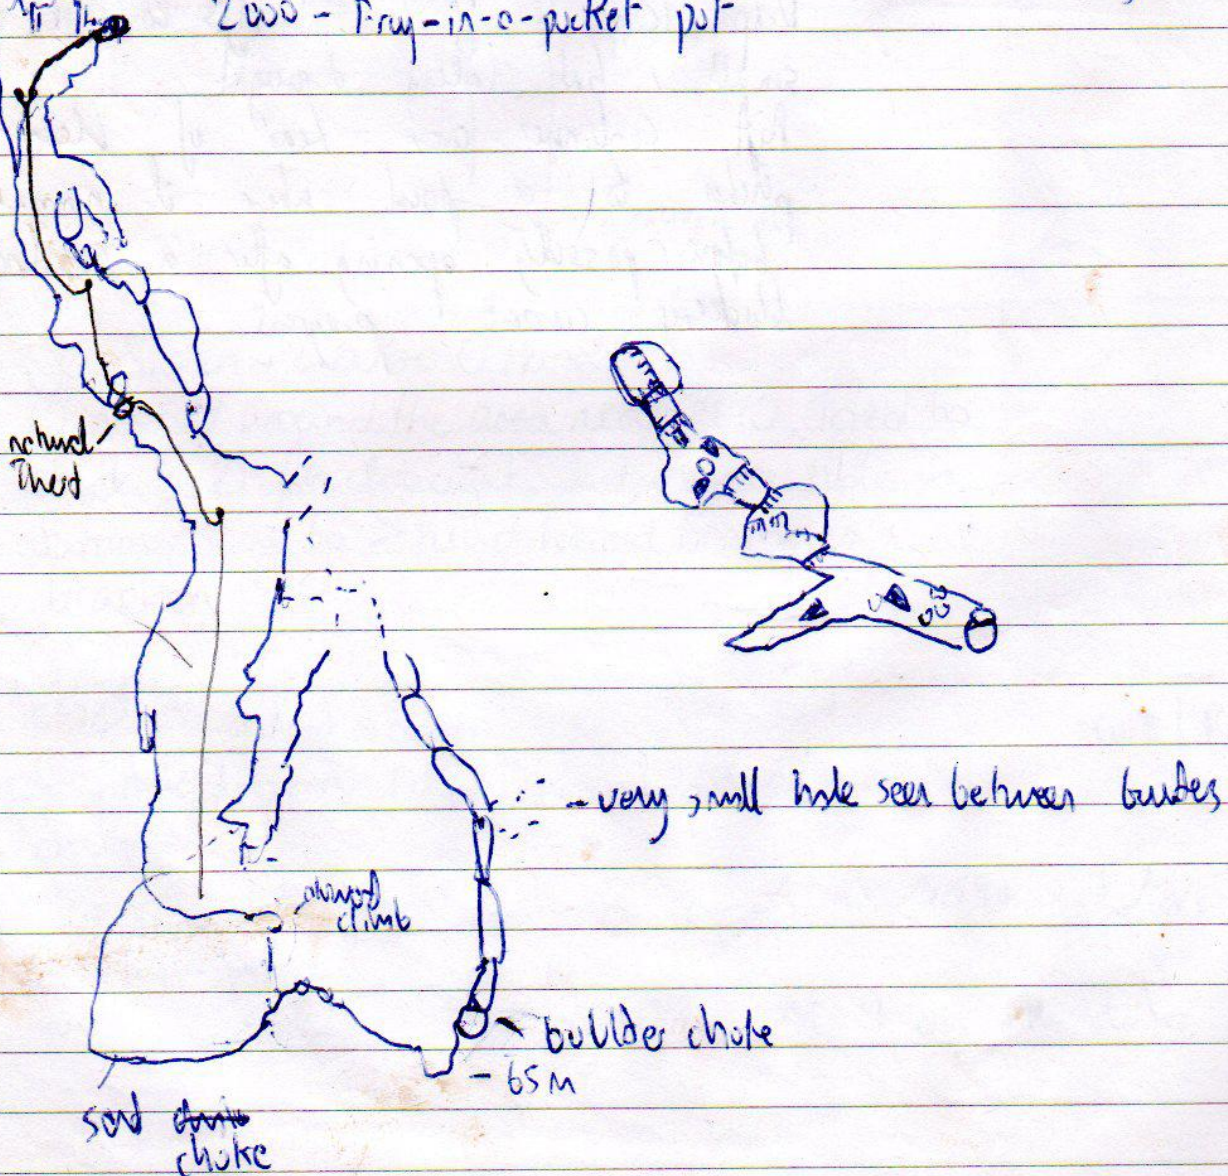 2000 - Fray-in-a-pocket pot
natural
Thred
- very small hole seen between
climb
boulder choke
- 65m
sand
choke